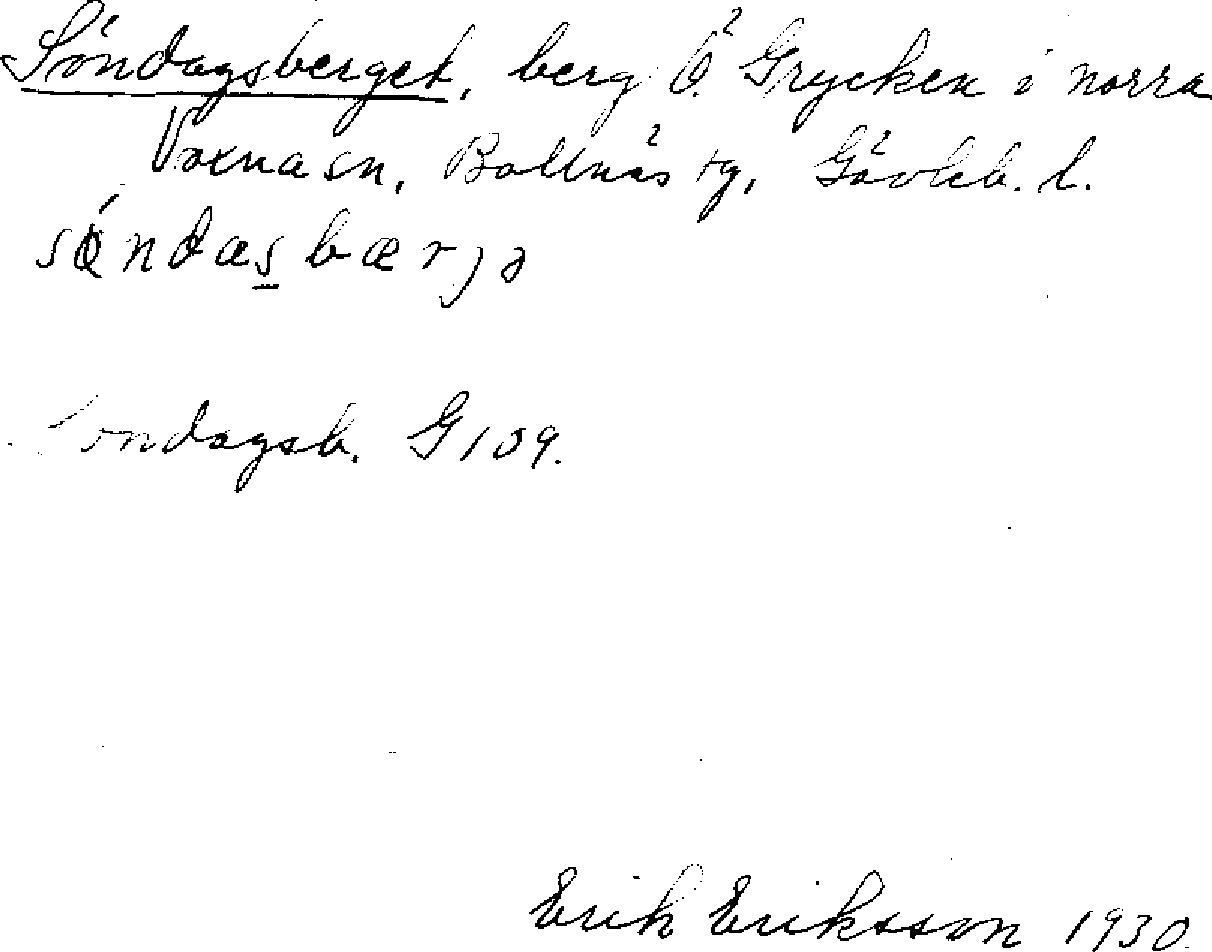 Söndagsberget, berg Ö. Grycken i norra
Voxna sn, Bollnäs tg, Gävleb. l.
sǿndasbærjə
Söndagsb. G 109.
Erik Eriksson 1930.